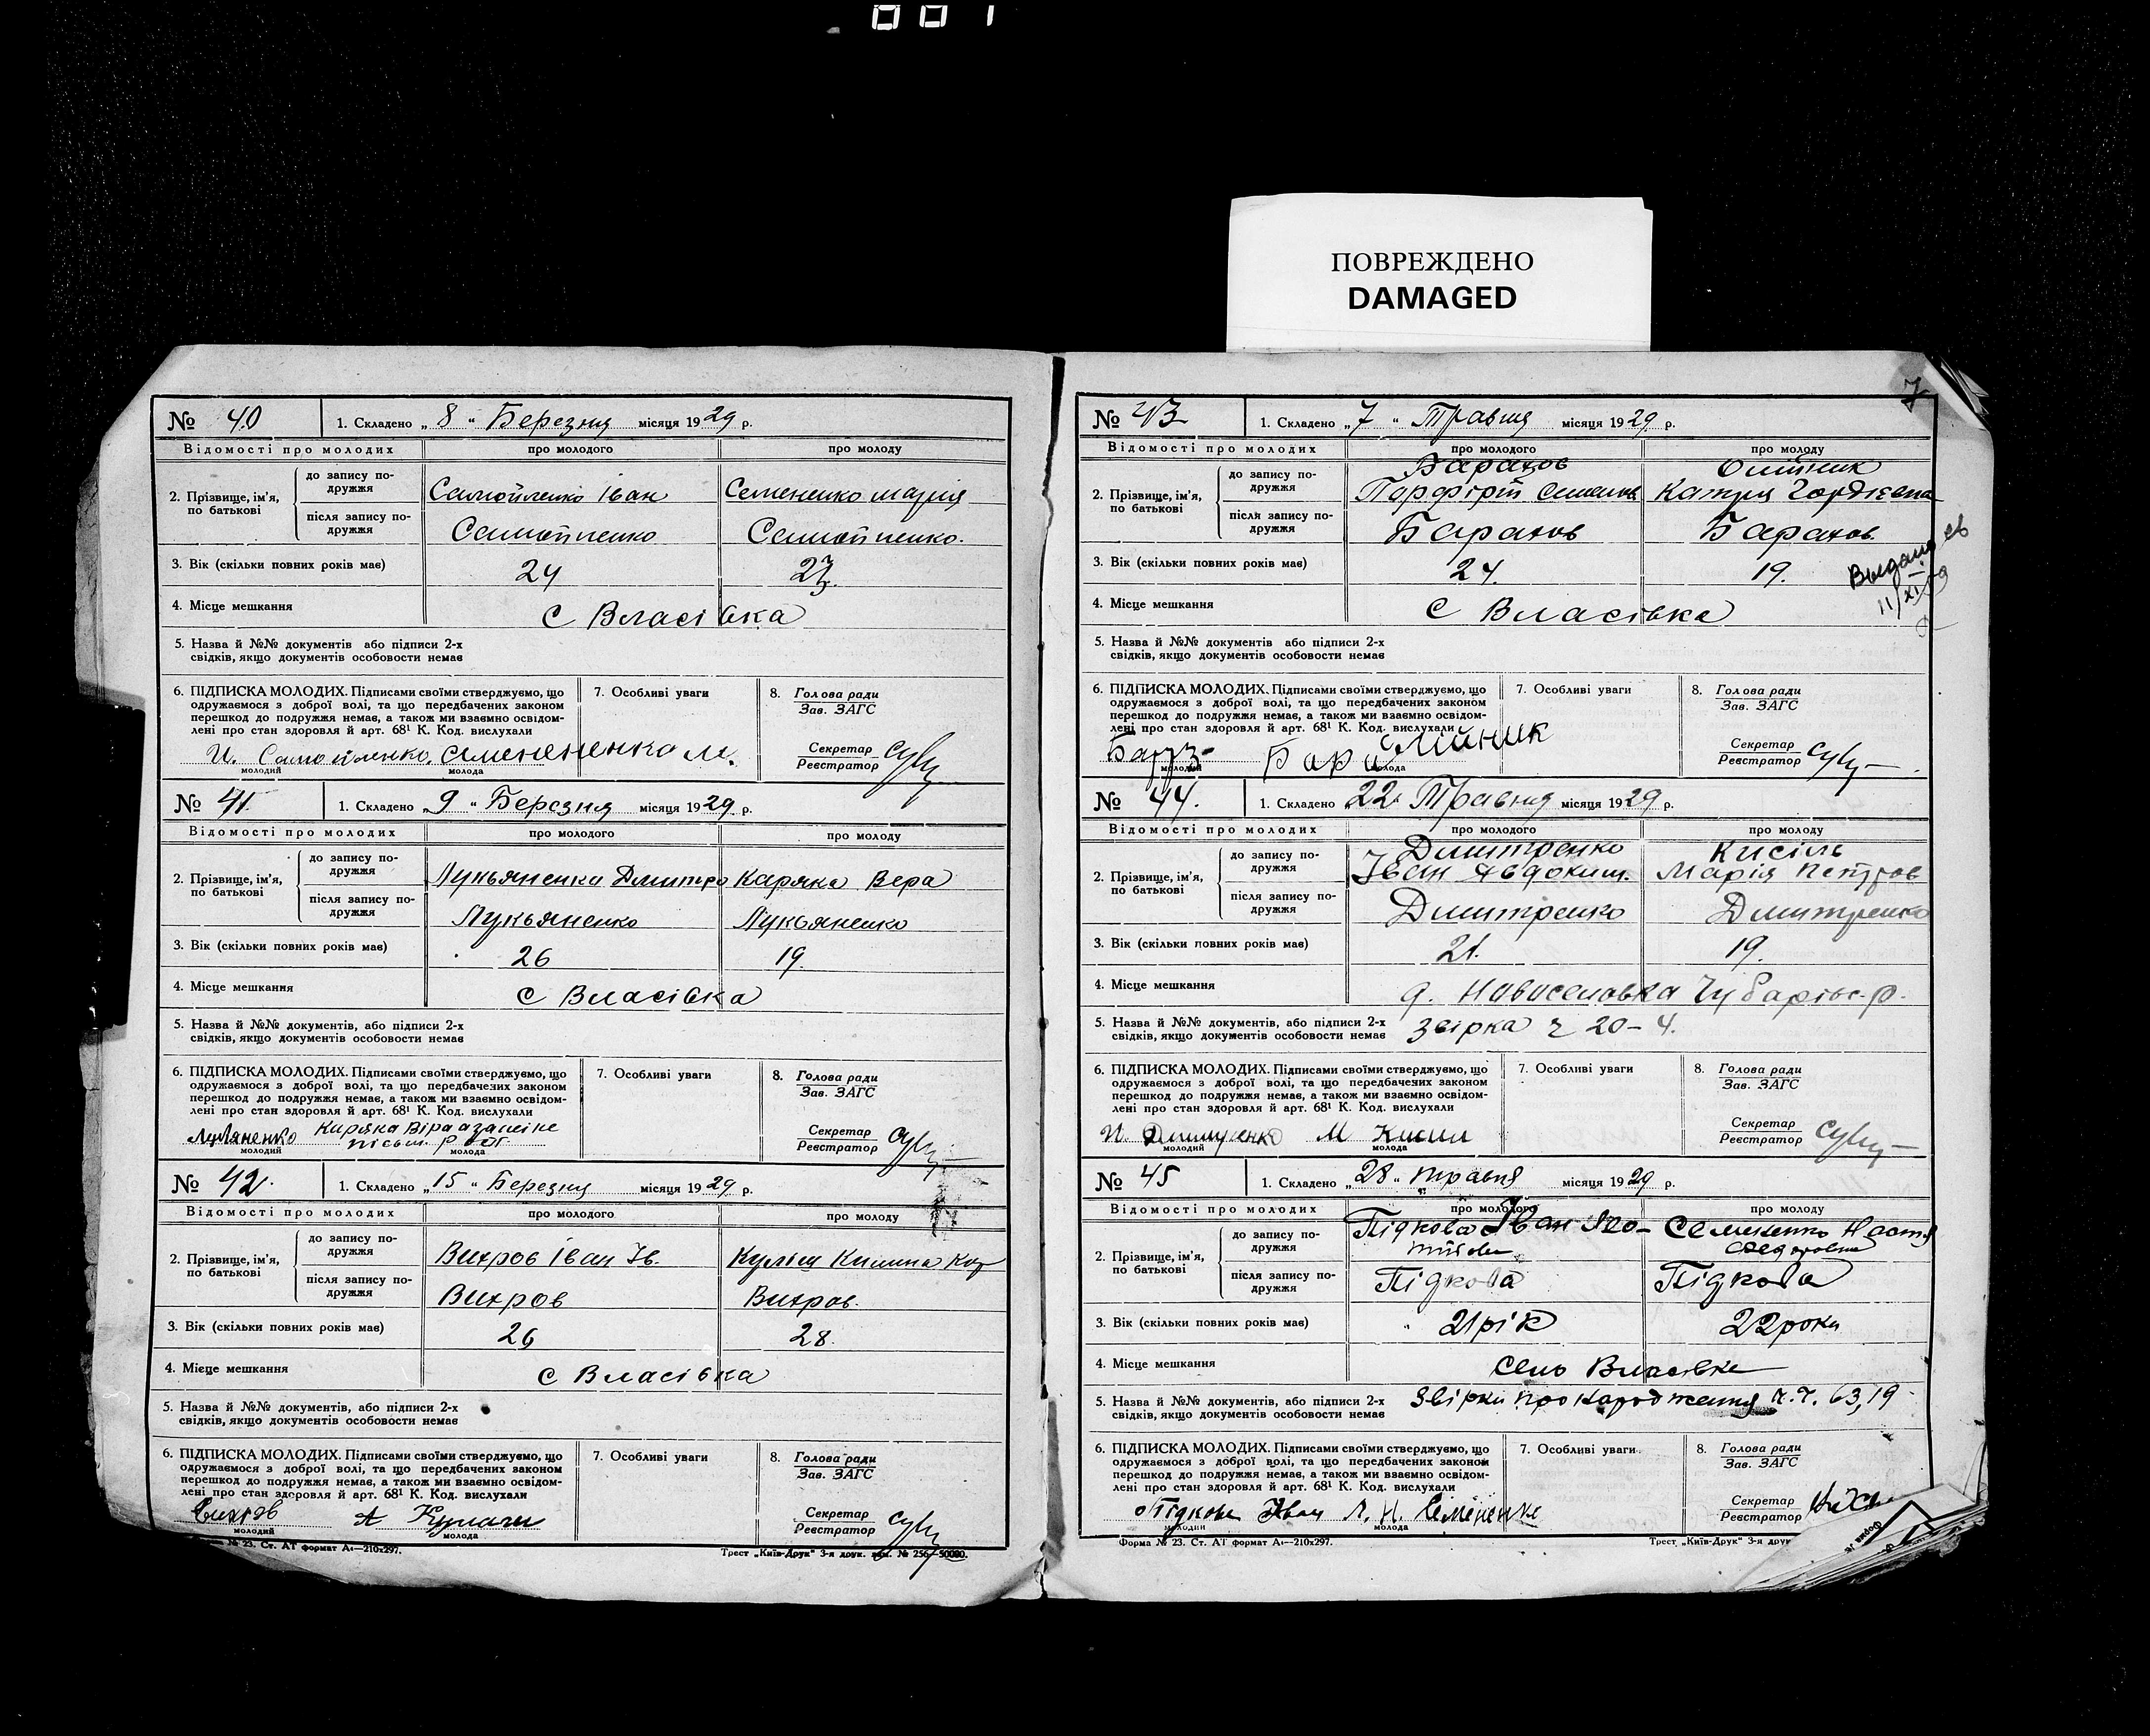 ПОВРЕЖДЕНО
DAMAGED
№ 40
1. Складено „ 8 “ Березня місяця 1929 р.
Відомості про молодих
про молодого
про молоду
2. Прізвище, ім'я, по батькові
до запису по-
дружжя
Самойленко Іван
Семененко Марія
після запису по-
дружжя
Самойленко
Самойленко.
3. Вік (скільки повних років має)
24
23.
4. Місце мешкання
с Власівка
5. Назва й №№ документів або підписи 2-х
свідків, якщо документів особовости немає
6. ПІДПИСКА МОЛОДИХ. Підписами своїми стверджуємо, що
одружаємося з доброї волі, та що передбачених законом
перешкод до подружжя немає, а також ми взаємно освідом-
лені про стан здоровля й арт. 68¹ К. Код. вислухали
И. Самойленко. Семененко М.
молодий
молода
7. Особливі уваги
8. Голова ради
Зав. ЗАГС
Секретар
Реєстратор
№ 41.
1. Складено „ 9 “ Березня місяця 1929 р.
Відомості про молодих
про молодого
про молоду
2. Прізвище, ім'я,
по батькові
до запису по-
дружжя
Лукьяненко Дмитро
Каряка Вера
після запису по-
дружжя
Лукьяненко
Лукьяненко
3. Вік (скільки повних років має)
26
19.
4. Місце мешкання
с Власівка
5. Назва й №№ документів, або підписи 2-х
свідків, якщо документів особовости немає
6. ПІДПИСКА МОЛОДИХ. Підписами своїми стверджуємо, що
одружаємося з доброї волі, та що передбачених законом
перешкод до подружжя немає, а також ми взаємно освідом-
лені про стан здоровля й арт. 68¹ К. Код. вислухали
молодий
молода
7. Особливі уваги
8. Голова ради
Зав. ЗАГС
Секретар
Реєстратор
№ 42.
1. Складено „ 15 “ Березня місяця 1929 р.
Відомості про молодих
про молодого
про молоду
2. Прізвище, ім'я,
по батькові
до запису по-
дружжя
Вихров Іван Ів.
після запису по-
дружжя
Вихров
Вихров.
3. Вік (скільки повних років має)
26
28.
4. Місце мешкання
с Власівка
5. Назва й №№ документів, або підписи 2-х
свідків, якщо документів особовости немає
6. ПІДПИСКА МОЛОДИХ. Підписами своїми стверджуємо, що
одружаємося з доброї волі, та що передбачених законом
перешкод до подружжя немає, а також ми взаємно освідом-
лені про стан здоровля й арт. 68¹ К. Код. вислухали
Вихров
молодий
молода
7. Особливі уваги
8. Голова ради
Зав. ЗАГС
Секретар
Реєстратор
№ 23. Ст. АТ формат А₄—210x297.
Трест „Київ-Друк“ 3-я друк. зам. № 256—50000.
7
№ 43
1. Складено „ 7 “ Травня місяця 1929 р.
Відомості про молодих
про молодого
про молоду
2. Прізвище, ім'я,
по батькові
до запису по-
дружжя
Порфірій
Катря Гордієвна
після запису по-
дружжя
3. Вік (скільки повних років має)
24.
19.
4. Місце мешкання
с Власівка
5. Назва й №№ документів або підписи 2-х
свідків, якщо документів особовости немає
6. ПІДПИСКА МОЛОДИХ. Підписами своїми стверджуємо, що
одружаємося з доброї волі, та що передбачених законом
перешкод до подружжя немає, а також ми взаємно освідом-
лені про стан здоровля й арт. 68¹ К. Код. вислухали
молодий
молода
7. Особливі уваги
8. Голова ради
Зав. ЗАГС
Секретар
Реєстратор
№ 44.
1. Складено „ 22 “ Травня місяця 1929 р.
Відомості про молодих
про молодого
про молоду
2. Прізвище, ім'я,
по батькові
до запису по-
дружжя
Дмитренко
Іван Явдоким.
Кисіль
Марія Петров
після запису по-
дружжя
Дмитренко
Дмитренко
3. Вік (скільки повних років має)
21.
19.
4. Місце мешкання
5. Назва й №№ документів, або підписи 2-х
свідків, якщо документів особовости немає
звірка ч 20-4.
6. ПІДПИСКА МОЛОДИХ. Підписами своїми стверджуємо, що
одружаємося з доброї волі, та що передбачених законом
перешкод до подружжя немає, а також ми взаємно освідом-
лені про стан здоровля й арт. 68¹ К. Код. вислухали
молодий
молода
7. Особливі уваги
8. Голова ради
Зав. ЗАГС
Секретар
Реєстратор
№ 45
1. Складено „ 28 “ травня місяця 1929 р.
Відомості про молодих
про молодого
про молоду
2. Прізвище, ім'я,
по батькові
до запису по-
дружжя
Підкова Іван
Семененко Настя
після запису по-
дружжя
Підкова
Підкова
3. Вік (скільки повних років має)
21 рік
22 роки
4. Місце мешкання
село Власівка
5. Назва й №№ документів, або підписи 2-х
свідків, якщо документів особовости немає
Звірки про народження ч.ч. 63, 19
6. ПІДПИСКА МОЛОДИХ. Підписами своїми стверджуємо, що
одружаємося з доброї волі, та що передбачених законом
перешкод до подружжя немає, а також ми взаємно освідом-
лені про стан здоровля й арт. 68¹ К. Код. вислухали
Підкова Іван
молодий
молода
7. Особливі уваги
8. Голова ради
Зав. ЗАГС
Секретар
Реєстратор
Форма № 23. Ст. АТ формат А₄—210x297.
Трест „Київ-Друк“ 3-я друк